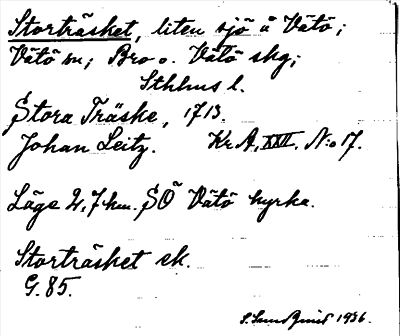 Storträsket, liten sjö å Vätö;
Vätö sn; Bro o. Vätö skg;
Sthlms l.
Stora Träske, 1713.
Johan Leitz. Kr A, XXII. N:o 17.
Läge 2,7 km. SÖ Vätö kyrka.
Storträsket ek.
G. 85.
S. Sundquist 1936.